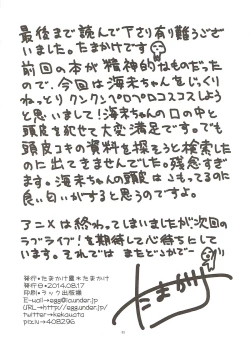 最後まで読んで下さり有り難うござ
いました。たまかけです
前回の本が精神的なものだった
ので、今回は海未ちゃんをじっくり
ねっとりクンクンペロペロコスコスしよう
と思いまして!海未ちゃんの口の中と
頭皮を犯せて大変満足です。でも
頭皮コキの資料を探そうと検索した
のに出てきませんでした。残念すぎ
ます。海未ちゃんの頭皮は
良い匂いがすると思うのですよ。
アニメは終わってしまいましたが次回の
ラブライブ!を期待して心待ちにして
います。それではまたどこかでー
発行・たまかけ
発行日・2014.08.17
印刷・ラック出版様
E-mail→egg@iaunder.jp
URL→http://egg.under.jp/
twitter→kakeuata
pixiv→408296
たまかけ